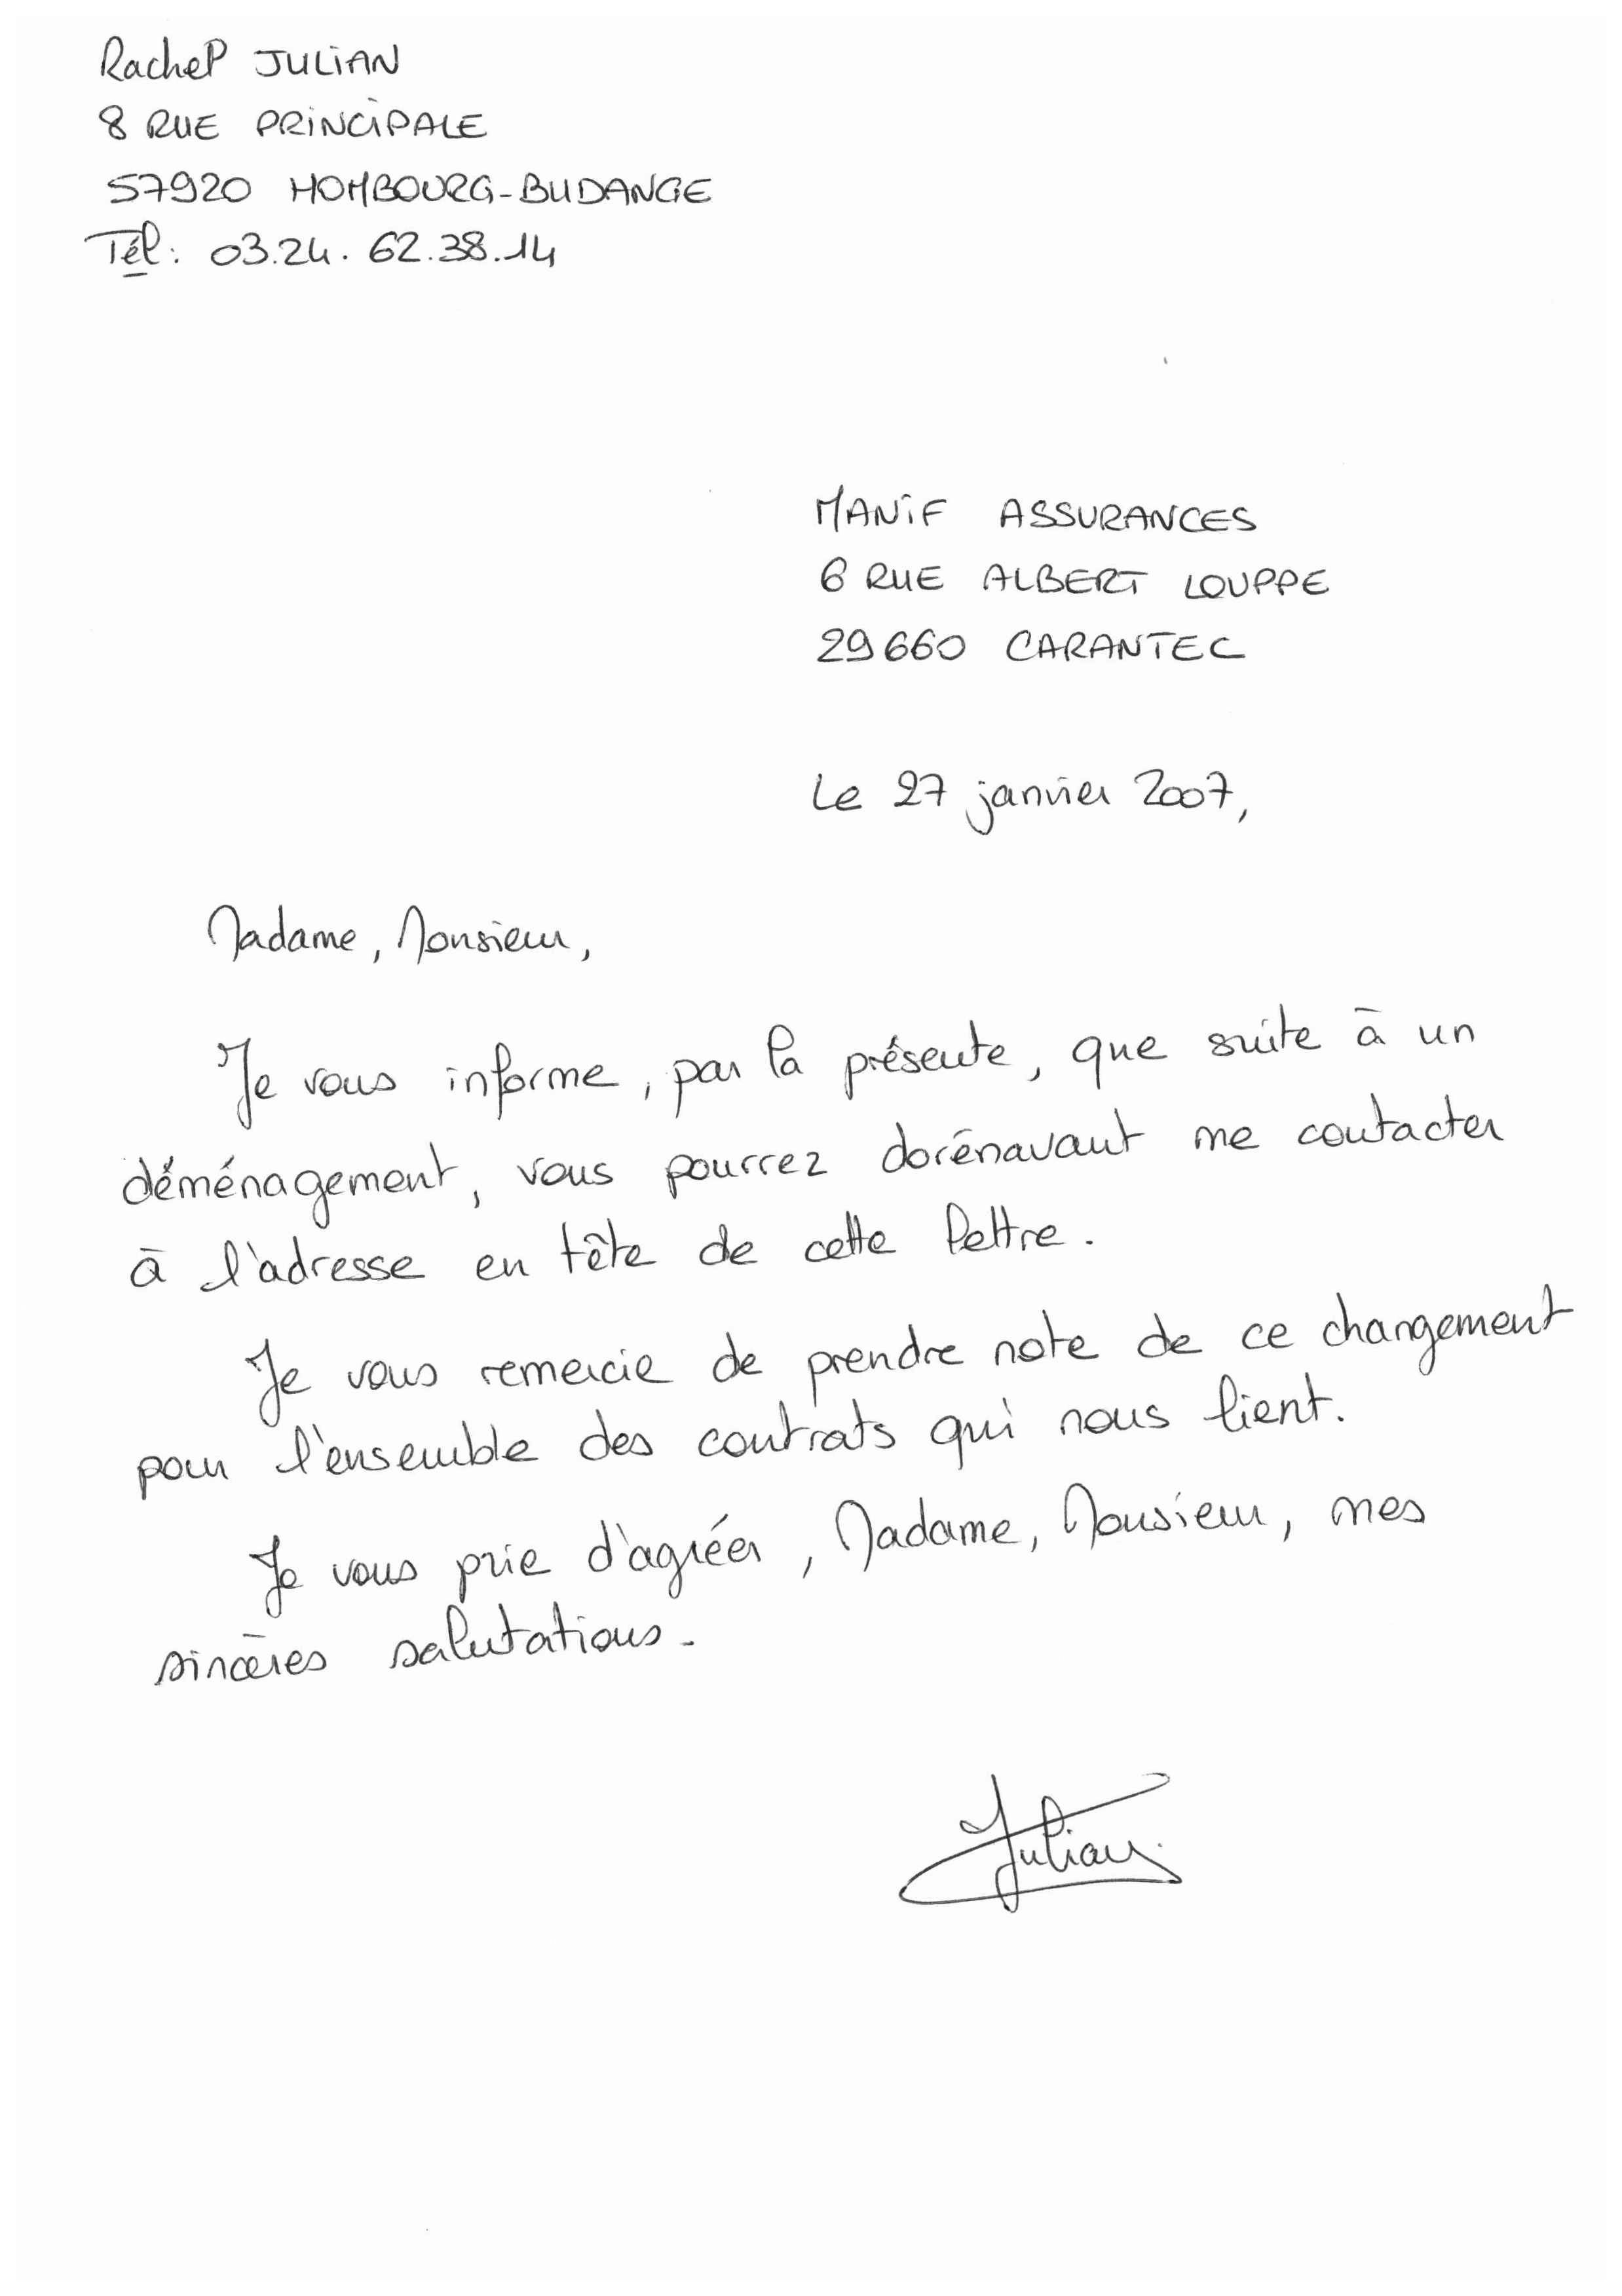 Rachel JULIAN
8 RUE PRINCIPALE
57920 HOMBOURG-BUDANGE
Tél: 03.24.62.38.14
MANIF ASSURANCES
6 RUE ALBERT LOUPPE
29660 CARANTEC
Le 27 janvier 2007,
Madame, Monsieur,
Je vous informe, par la présente, que suite à un
déménagement, vous pourrez dorénavant me contacter
à l'adresse en tête de cette lettre.
Je vous remercie de prendre note de ce changement
pour l'ensemble des contrats qui nous lient.
Je vous prie d'agréer, Madame, Monsieur, mes
sincères salutations.
Julian